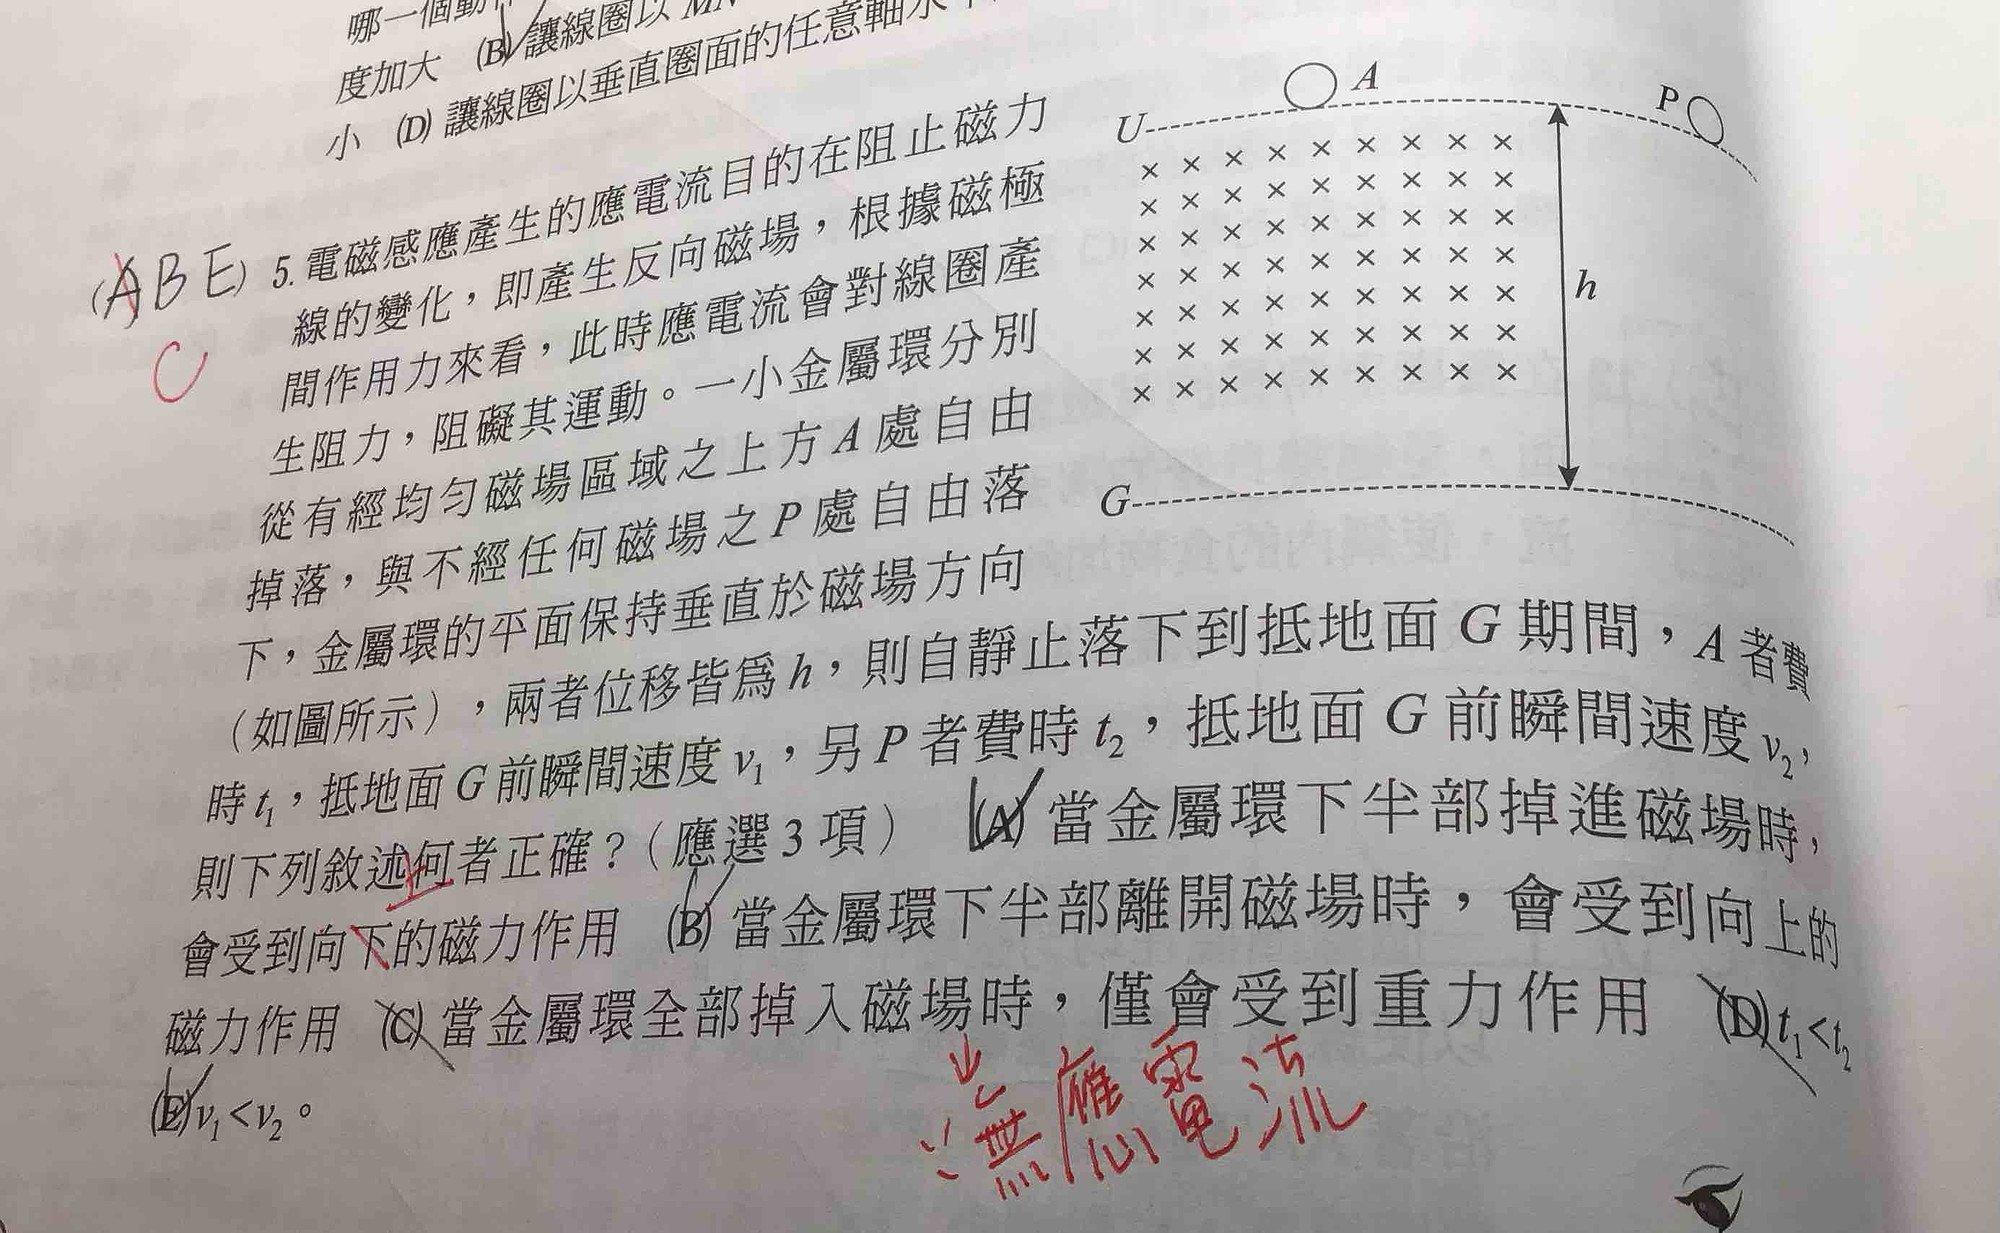 哪一個動
度加大 (B) 讓線圈以 MN
小 (D) 讓線圈以垂直圈面的任意軸水
(ABE) 5. 電磁感應產生的應電流目的在阻止磁力
C
線的變化，即產生反向磁場，根據磁極
間作用力來看，此時應電流會對線圈產
生阻力，阻礙其運動。一小金屬環分別
從有經均勻磁場區域之上方 A 處自由
掉落，與不經任何磁場之 P 處自由落
下，金屬環的平面保持垂直於磁場方向
（如圖所示），兩者位移皆為 h，則自靜止落下到抵地面 G 期間，A 者費
時 t₁，抵地面 G 前瞬間速度 v₁，另 P 者費時 t₂，抵地面 G 前瞬間速度 v₂，
則下列敘述何者正確？（應選 3 項） (A) 當金屬環下半部掉進磁場時，
上
會受到向下的磁力作用 (B) 當金屬環下半部離開磁場時，會受到向上的
磁力作用 (C) 當金屬環全部掉入磁場時，僅會受到重力作用 (D) t₁<t₂
(E) v₁<v₂。
無應電流
A
P
U
× × × × × × × × ×
× × × × × × × × ×
× × × × × × × × ×
× × × × × × × × ×
× × × × × × × × ×
× × × × × × × × ×
× × × × × × × × ×
h
G